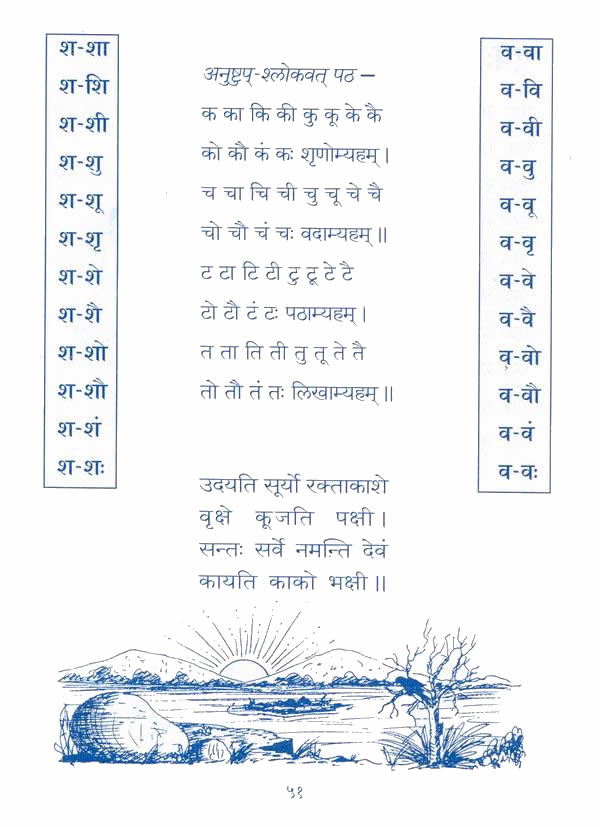 श-शा
श-शि
श-शी
श-शु
श-शू
श-शृ
श-शे
श-शै
श-शो
श-शौ
श-शं
श-शः
अनुष्टुप्-श्लोकवत् पठ –
क का कि की कु कू के कै
को कौ कं कः शृणोम्यहम् ।
च चा चि ची चु चू चे चै
चो चौ चं चः वदाम्यहम् ॥
ट टा टि टी टु टू टे टै
टो टौ टं टः पठाम्यहम् ।
त ता ति ती तु तू ते तै
तो तौ तं तः लिखाम्यहम् ॥
उदयति सूर्यो रक्ताकाशे
वृक्षे कूजति पक्षी ।
सन्तः सर्वे नमन्ति देवं
कायति काको भक्षी ॥
व-वा
व-वि
व-वी
व-वु
व-वू
व-वृ
व-वे
व-वै
व-वो
व-वौ
व-वं
व-वः
५१